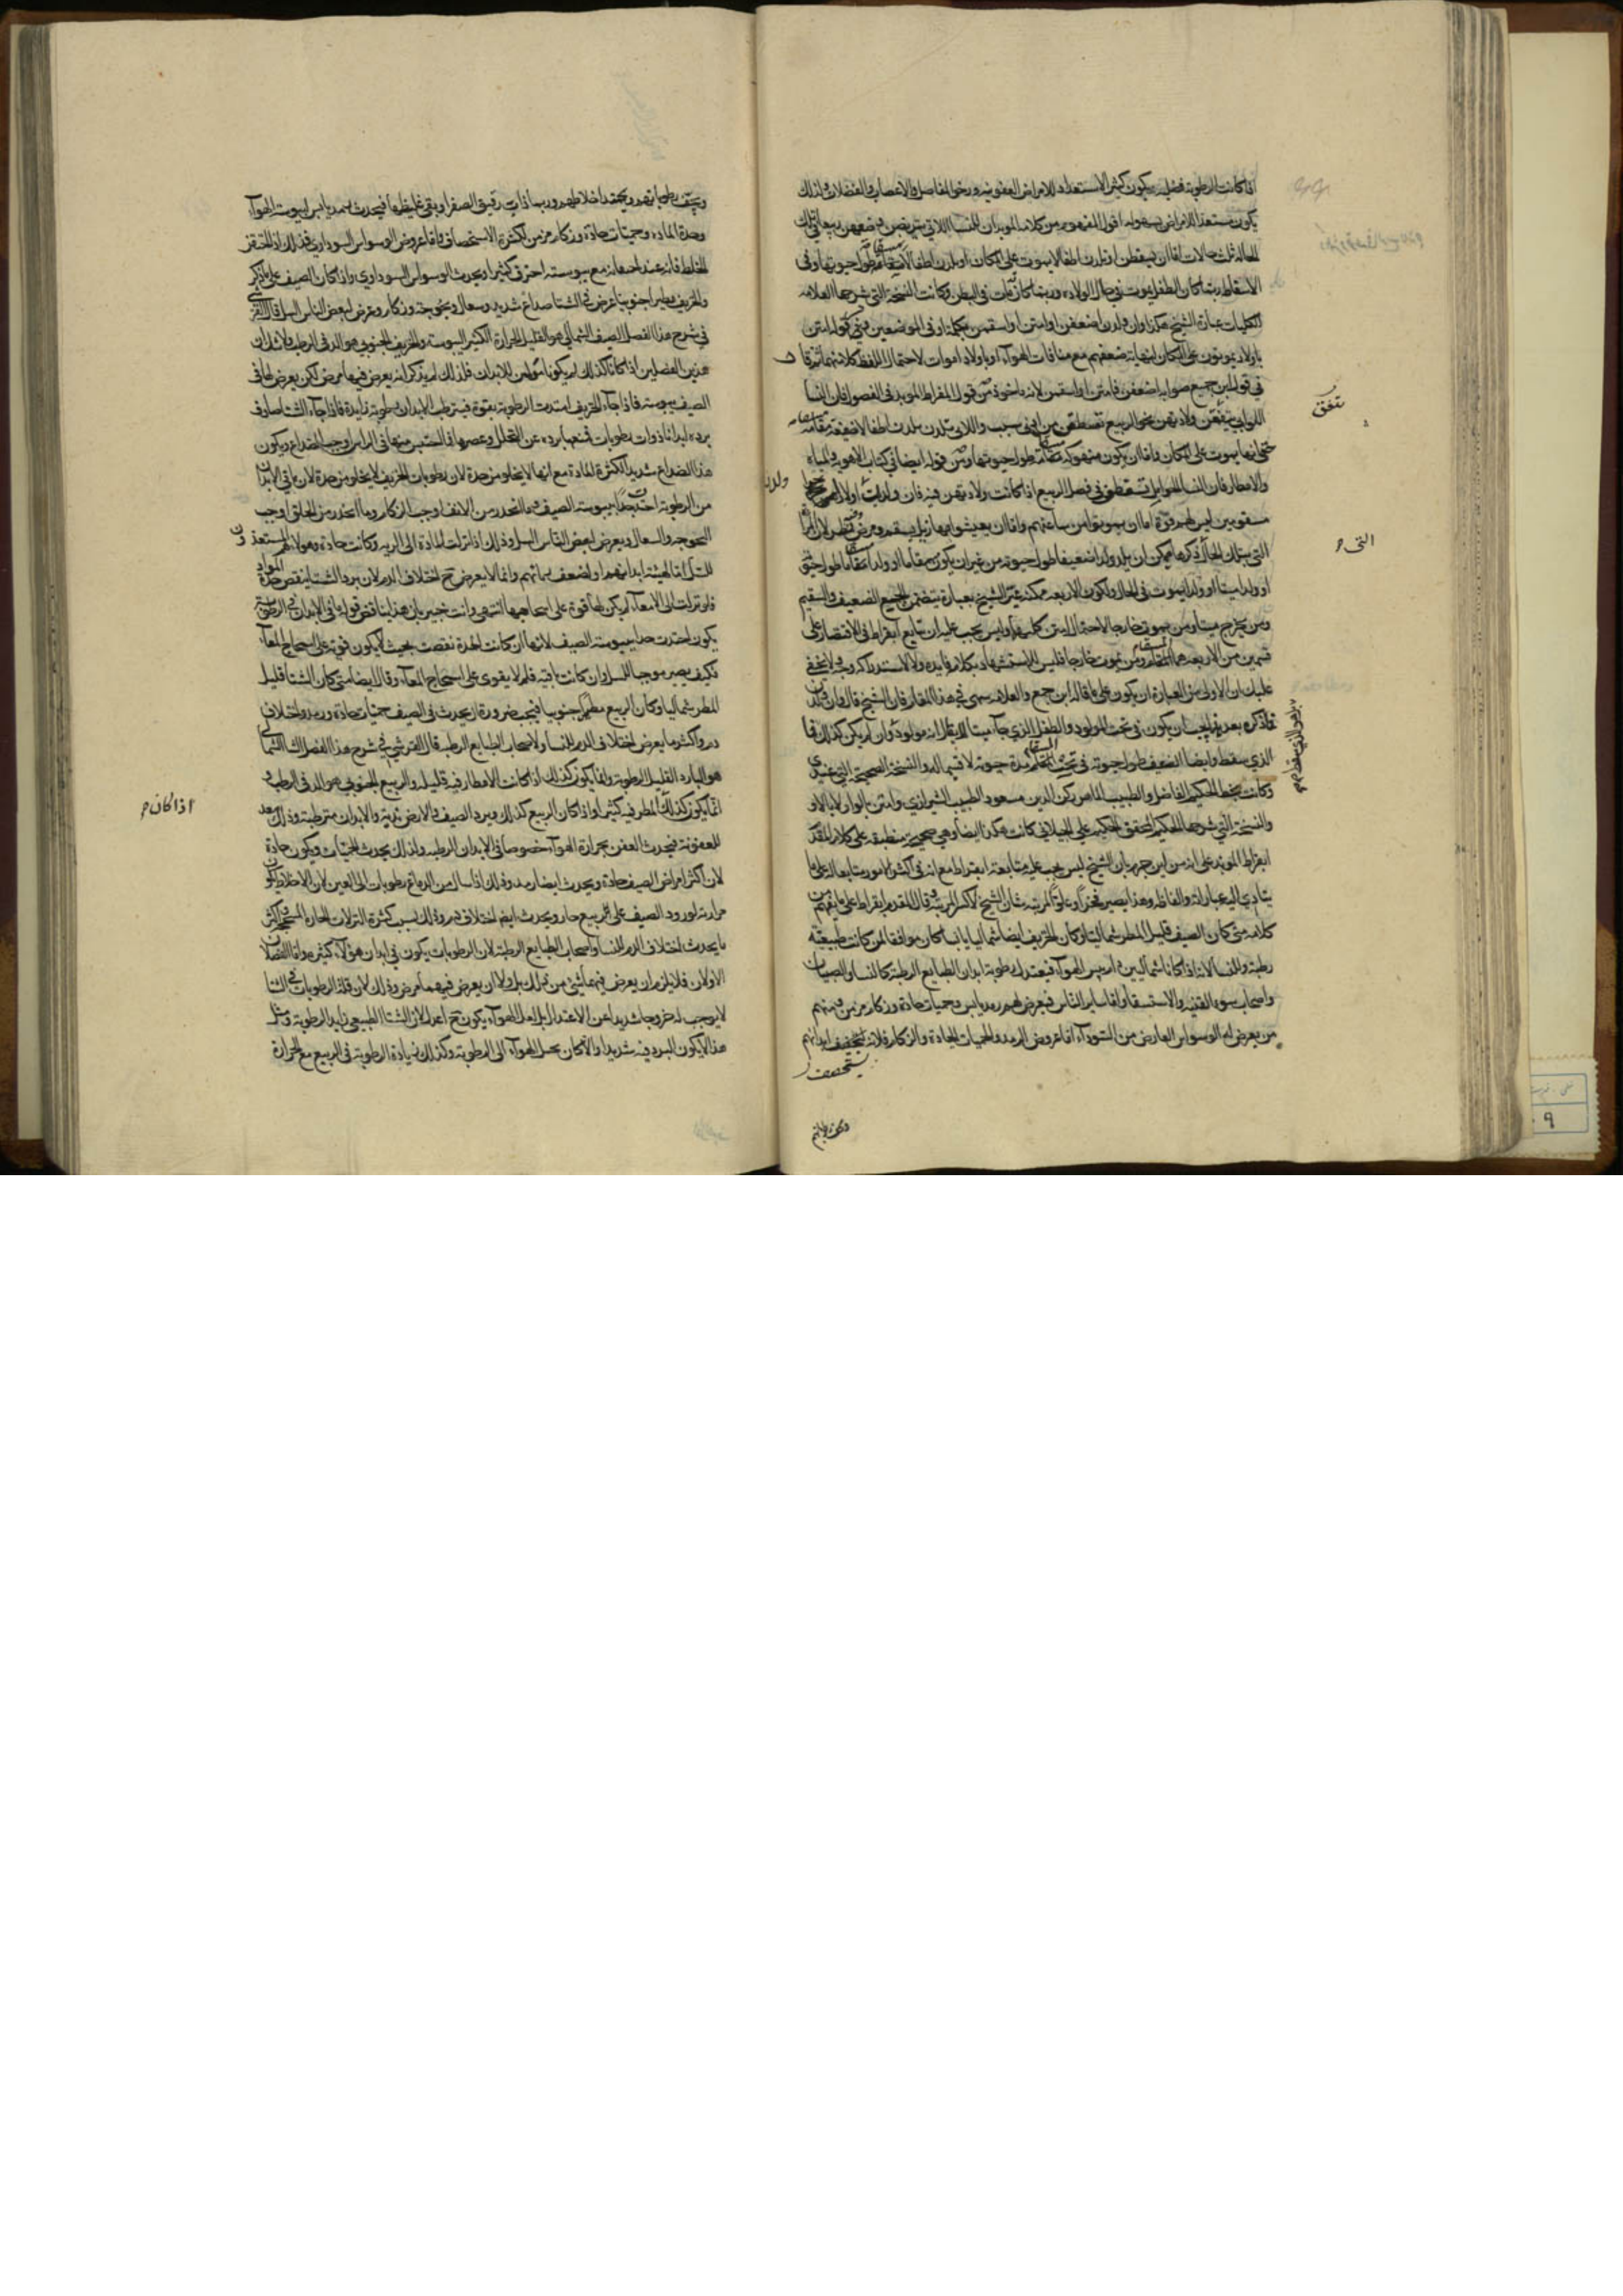 اذا كانت الرطوبة فضلية يكون كثير الاستعداد للامراض العفونيه ورخو المفاصل والاعصاب والعضلات ولذلك
يكون مستعدا للامراض بسهولة اقول المفهوم من كلامه الموبدان للنساء اللاتي
ثلث حالات اما ان يسقطن او تلدن اطفالا يموت على المكان او يلدن اطفالا حيوتها وفي
الاسقاط ربما كان الطفل يموت في حال الولادة وربما كان مات في البطن وكانت النسخة التي شرحها العلامه
للكليات عبارة الشيخ هكذا وان ولدن اضعفن او امتن او اسقمن
باولاد يموتون على المكان لنهاية ضعفهم مع منافات الهواء او باولاد اموات لاحتمال اللفظ
في قول ابن جميع صوابه اضعفن فامتن او اسقمن لانه ماخوذ من قول ابقراط الموبد في الفصول فان النساء
اللواتي يتفقن ولادتهن نحو الربيع تسقطن من ادنى سبب واللاتي تلدن منهن تلدن اطفالا ضعيفة
حتى انها يموت على المكان واما ان يكون منهوكة طول حيوتها ومن قوله ايضا في كتاب الاهويه والمياه
والامطار فان النساء الحوامل تسقطن في فصل الربيع اذا كانت ولادتهن فيه فان ولدت اولادا
مسقومين ليس لهم قوة اما ان يموتوا من ساعتهم واما ان يعيشوا
التي بتلك الحال ذكرها يمكن ان يلد ولدا ضعيفا طول حيوته من غير ان يكون مسقاما او ولدا مسقاما طول حيوته
او ولدا ميتا او ولدا يموت في الحال ولكون الاربعه ممكنة عبر الشيخ بعبارة يتضمن الجميع الضعيف والسقيم
ومن يخرج ميتا ومن يموت خارجا لاحتمال امتن كليهما وليس يجب عليه ان يتابع ابقراط في الاقتصار على
قسمين من الاربعه هما السقام ومن يموت خارجا فليس للاستشهاد بكلامه فايده ولا لاستدراكه وجه ولا يخفى
عليك ان الاولى من العبارة ان يكون على ما قاله ابن جميع والعلامه سهى في هذا المقام فان الشيخ قال وان ولدن
فما ذكره بعد يجب ان يكون في تحت المولود والطفل الذي جاء ميتا لا يقال انه مولود وان لم يكن كذلك فما
الذي سقط وايضا الضعيف طول حيوته في تحت السقام مدة حيوته لا قسيما له والنسخة الصحيحة التي عندي
وكانت بخط الحكيم الفاضل والطبيب الماهر ركن الدين مسعود الطبيب الشيرازي وامتن بالواو لا بالاو
والنسخة التي شرحها الحكيم المحقق الحكيم علي الجيلاني كانت هكذا ايضا وهي صحيحة منطبقة على كلام المقدم
ابقراط الموبد على انه من اين جزم بان الشيخ ليس يجب عليه متابعة ابقراط مع انه في اكثر الامور متابعا له على ما
ينادي اليه عباراته والفاظه وهذا يصير فخرا وعلو المرتبة شان الشيخ قال المقدم ابقراط على ما يفهم من
كلامه متى كان الصيف قليل المطر شماليا وكان الخريف ايضا شماليا يابسا كان موافقا لمن كانت طبيعته
رطبة وللنساء لانه اذا كانا شماليين وهو يابس الهواء فيعتدل رطوبة ابدان الطبايع الرطبة كالنساء والصبيان
واصحاب سوء القنية والاستسقاء واما ساير الناس فيعرض لهم رمد يابس وحميات حادة وزكام مزمن ومنهم
من يعرض له الوسواس العارض من السوداء اما عروض الرمد والحميات الحادة والزكام فلانه يستحصف ابدانهم
يستحصف
تتفق
التي
ويجف رطوباتهم ويحتد اخلاطهم وربما ذابت رقيق الصفراء وبقي غليظها فيحدث بهم رمد يابس ليبوسة الهواء
وحدة الماده وحميات حادة وزكام مزمن لكثرة الاستحصاف واما عروض الوسواس السوداوي فذلك اذا
الخلط فانه عند احتقانه مع يبوسته احترق كثيرا ويحدث الوسواس السوداوي واذا كان الصيف على ما ذكر
والخريف مطيرا جنوبيا عرض في الشتا صداع شديد وسعال وبحوحة وزكام وعرض لبعض الناس السل قال القرشي
في شرح هذا الفصل الصيف الشمالي هو القليل الحرارة الكثير اليبوسة والخريف الجنوبي هو الدفي الرطب ولا شك ان
هذين الفصلين اذا كانا كذلك لم يكونا للابدان فلذلك لم يذكر انه يعرض فيهما مرض لكن يعرض لها في
الصيف يبوسة فاذا جاء الخريف امتدت الرطوبة بقوة فيترطب الابدان برطوبة زايدة فاذا جاء الشتا صادف
برده ابدانا ذوات رطوبات فمنعها برده عن التحلل وعصرها فما احتبس منها في الراس اوجب الصداع ويكون
هذا الصداع شديدا لكثرة المادة مع انها لا يخلو من حدة لان رطوبات الخريف لا يخلو من حدة لان ما في الابدان
من الرطوبة احتدت بيبوسة الصيف وما انحدر من الانف اوجب الزكام وما انحدر من الحلق اوجب
البحوحة والسعال ويعرض لبعض الناس السل وذلك اذا نزلت المادة الى الرية وكانت حادة وهولاء هم المستعدون
للسل اما لهيئة ابدانهم او لضعف رياتهم وانما لا يعرض ح اختلاف الدم لان برد الشتا ينقص حدة المواد
فلو نزلت الى الامعاء لم يكن لها قوة على اسحاجها انتهى وانت خبير بان هذا يناقض قوله ما في الابدان من الرطوبة
يكون احتدت حدا بيبوسة الصيف لانها ان كانت الحدة نقصت بحيث لا يكون قوية على اسحاج الامعاء
فكيف يصير موجبا للسل وان كانت باقيه فلم لا يقوى على اسحاج الامعاء وقال ايضا متى كان الشتا قليل
المطر شماليا وكان الربيع مطيرا جنوبيا فيجب ضرورة ان يحدث في الصيف حميات حادة ورمد واختلاف
دم واكثر ما يعرض اختلاف الدم للنساء ولاصحاب الطبايع الرطبة قال القرشي في شرح هذا الفصل الشتا الشمالي
هو البارد القليل الرطوبة وانما يكون كذلك اذا كانت الامطار فيه قليلة والربيع الجنوبي هو الدفي الرطب
انما يكون كذلك المطر فيه كثيرا واذا كان الربيع كذلك ويرد الصيف والارض ندية والابدان مترطبة وذلك معد
للعفونة فيحدث العفن بحرارة الهواء خصوصا في الابدان الرطبة ولذلك يحدث الحميات ويكون حادة
لان اكثر امراض الصيف حادة ويحدث ايضا رمد وذلك اذا سال من الدماغ رطوبات الى العين لان الاخلاط
حرارته لورود الصيف على الربيع حار ويحدث ايضا اختلاف دم وذلك بسبب كثرة النزلات الحارة واكثر
ما يحدث اختلاف الدم للنساء واصحاب الطبايع الرطبة لان الرطوبات يكون في ابدان هؤلاء كثيرة واما الفصلان
الاولان فلا يلزم ان يعرض فيهما شيء من ذلك بل ولا ان يعرض فيهما مرض وذلك لان قلة الرطوبات في الشتا
لا يوجب له خروجا شديدا عن الاعتدال بل لعل الهواء يكون ح اعدل لان الشتا الطبيعي زايد الرطوبة ومثل
هذا لا يكون البرد فيه شديدا والا كان يحيل الهواء الى الرطوبة وكذلك زيادة الرطوبة في الربيع مع الحرارة
اذا كان
٩